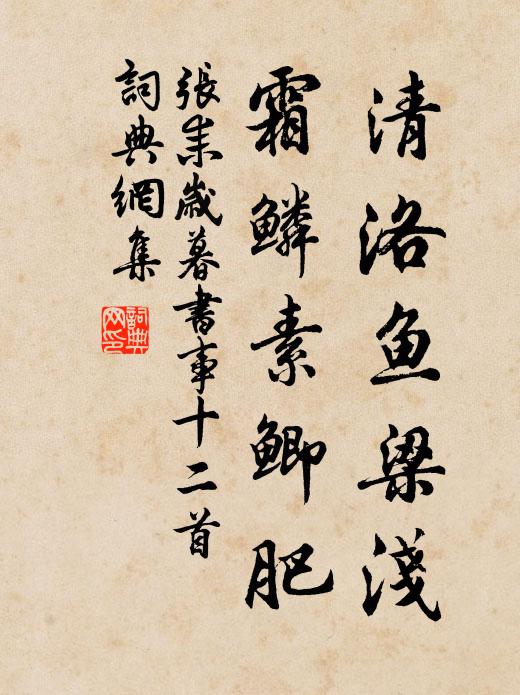 清洛鱼梁浅
霜鳞素鲫肥
張耒歲暮書事十二首
詞典網集
詞典
网印